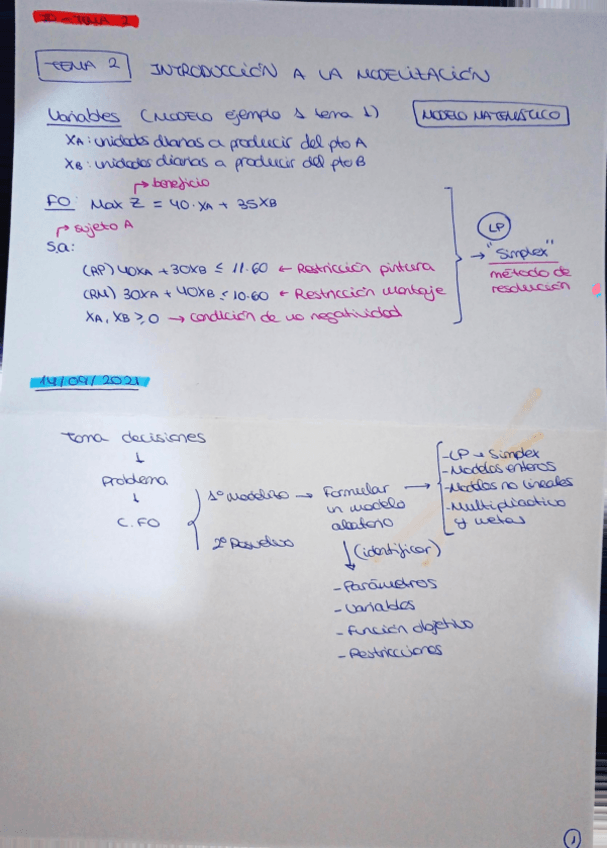 TEMA 2
TEMA 2 INTRODUCCIÓN A LA MODELIZACIÓN
Variables (MODELO ejemplo 1 tema 1) MODELO MATEMÁTICO
XA: unidades diarias a producir del pto A
XB: unidades diarias a producir del pto B
→ beneficio
FO: Max Z = 40·XA + 35XB
→ sujeto A
S.a:
(RP) 40XA + 30XB ≤ 11·60 ← Restricción pintura
(RM) 30XA + 40XB ≤ 10·60 ← Restricción montaje
XA, XB ≥ 0 → condición de no negatividad
LP
→ "Simplex"
método de
resolución
14/09/2021
Toma decisiones
↓
Problema
↓
C. FO
1º Modelizo → Formular
un modelo
2º Resuelvo
→ -LP → Simplex
-Modelos enteros
-Modelos no lineales
-Multiobjetivo
y metas
↓ (identificar)
- Parámetros
- Variables
- Función objetivo
- Restricciones
1